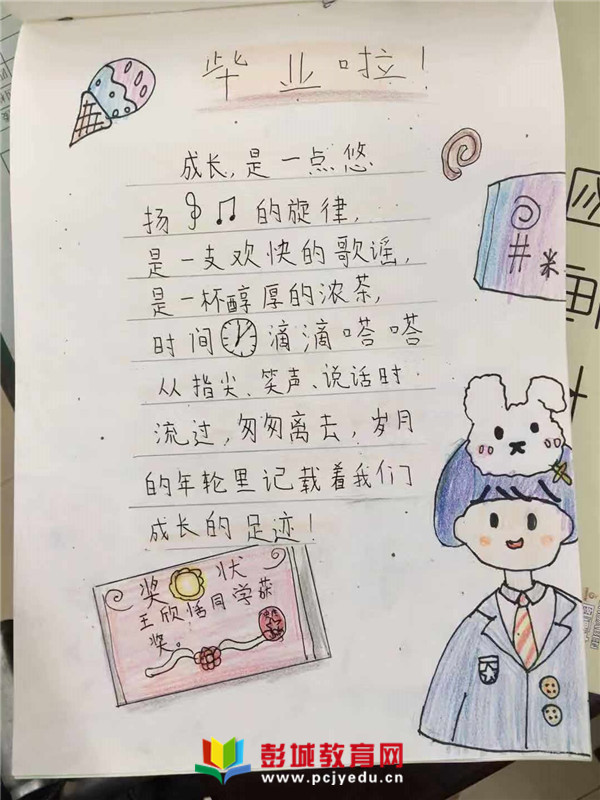 毕业啦!
成长,是一点悠
扬的旋律,
是一支欢快的歌谣,
是一杯醇厚的浓茶,
时间滴滴嗒嗒
从指尖、笑声、说话时
流过,匆匆离去,岁月
的年轮里记载着我们
成长的足迹!
#*
奖状
王欣恬同学获
奖。
彭城教育网
www.pcjyedu.cn